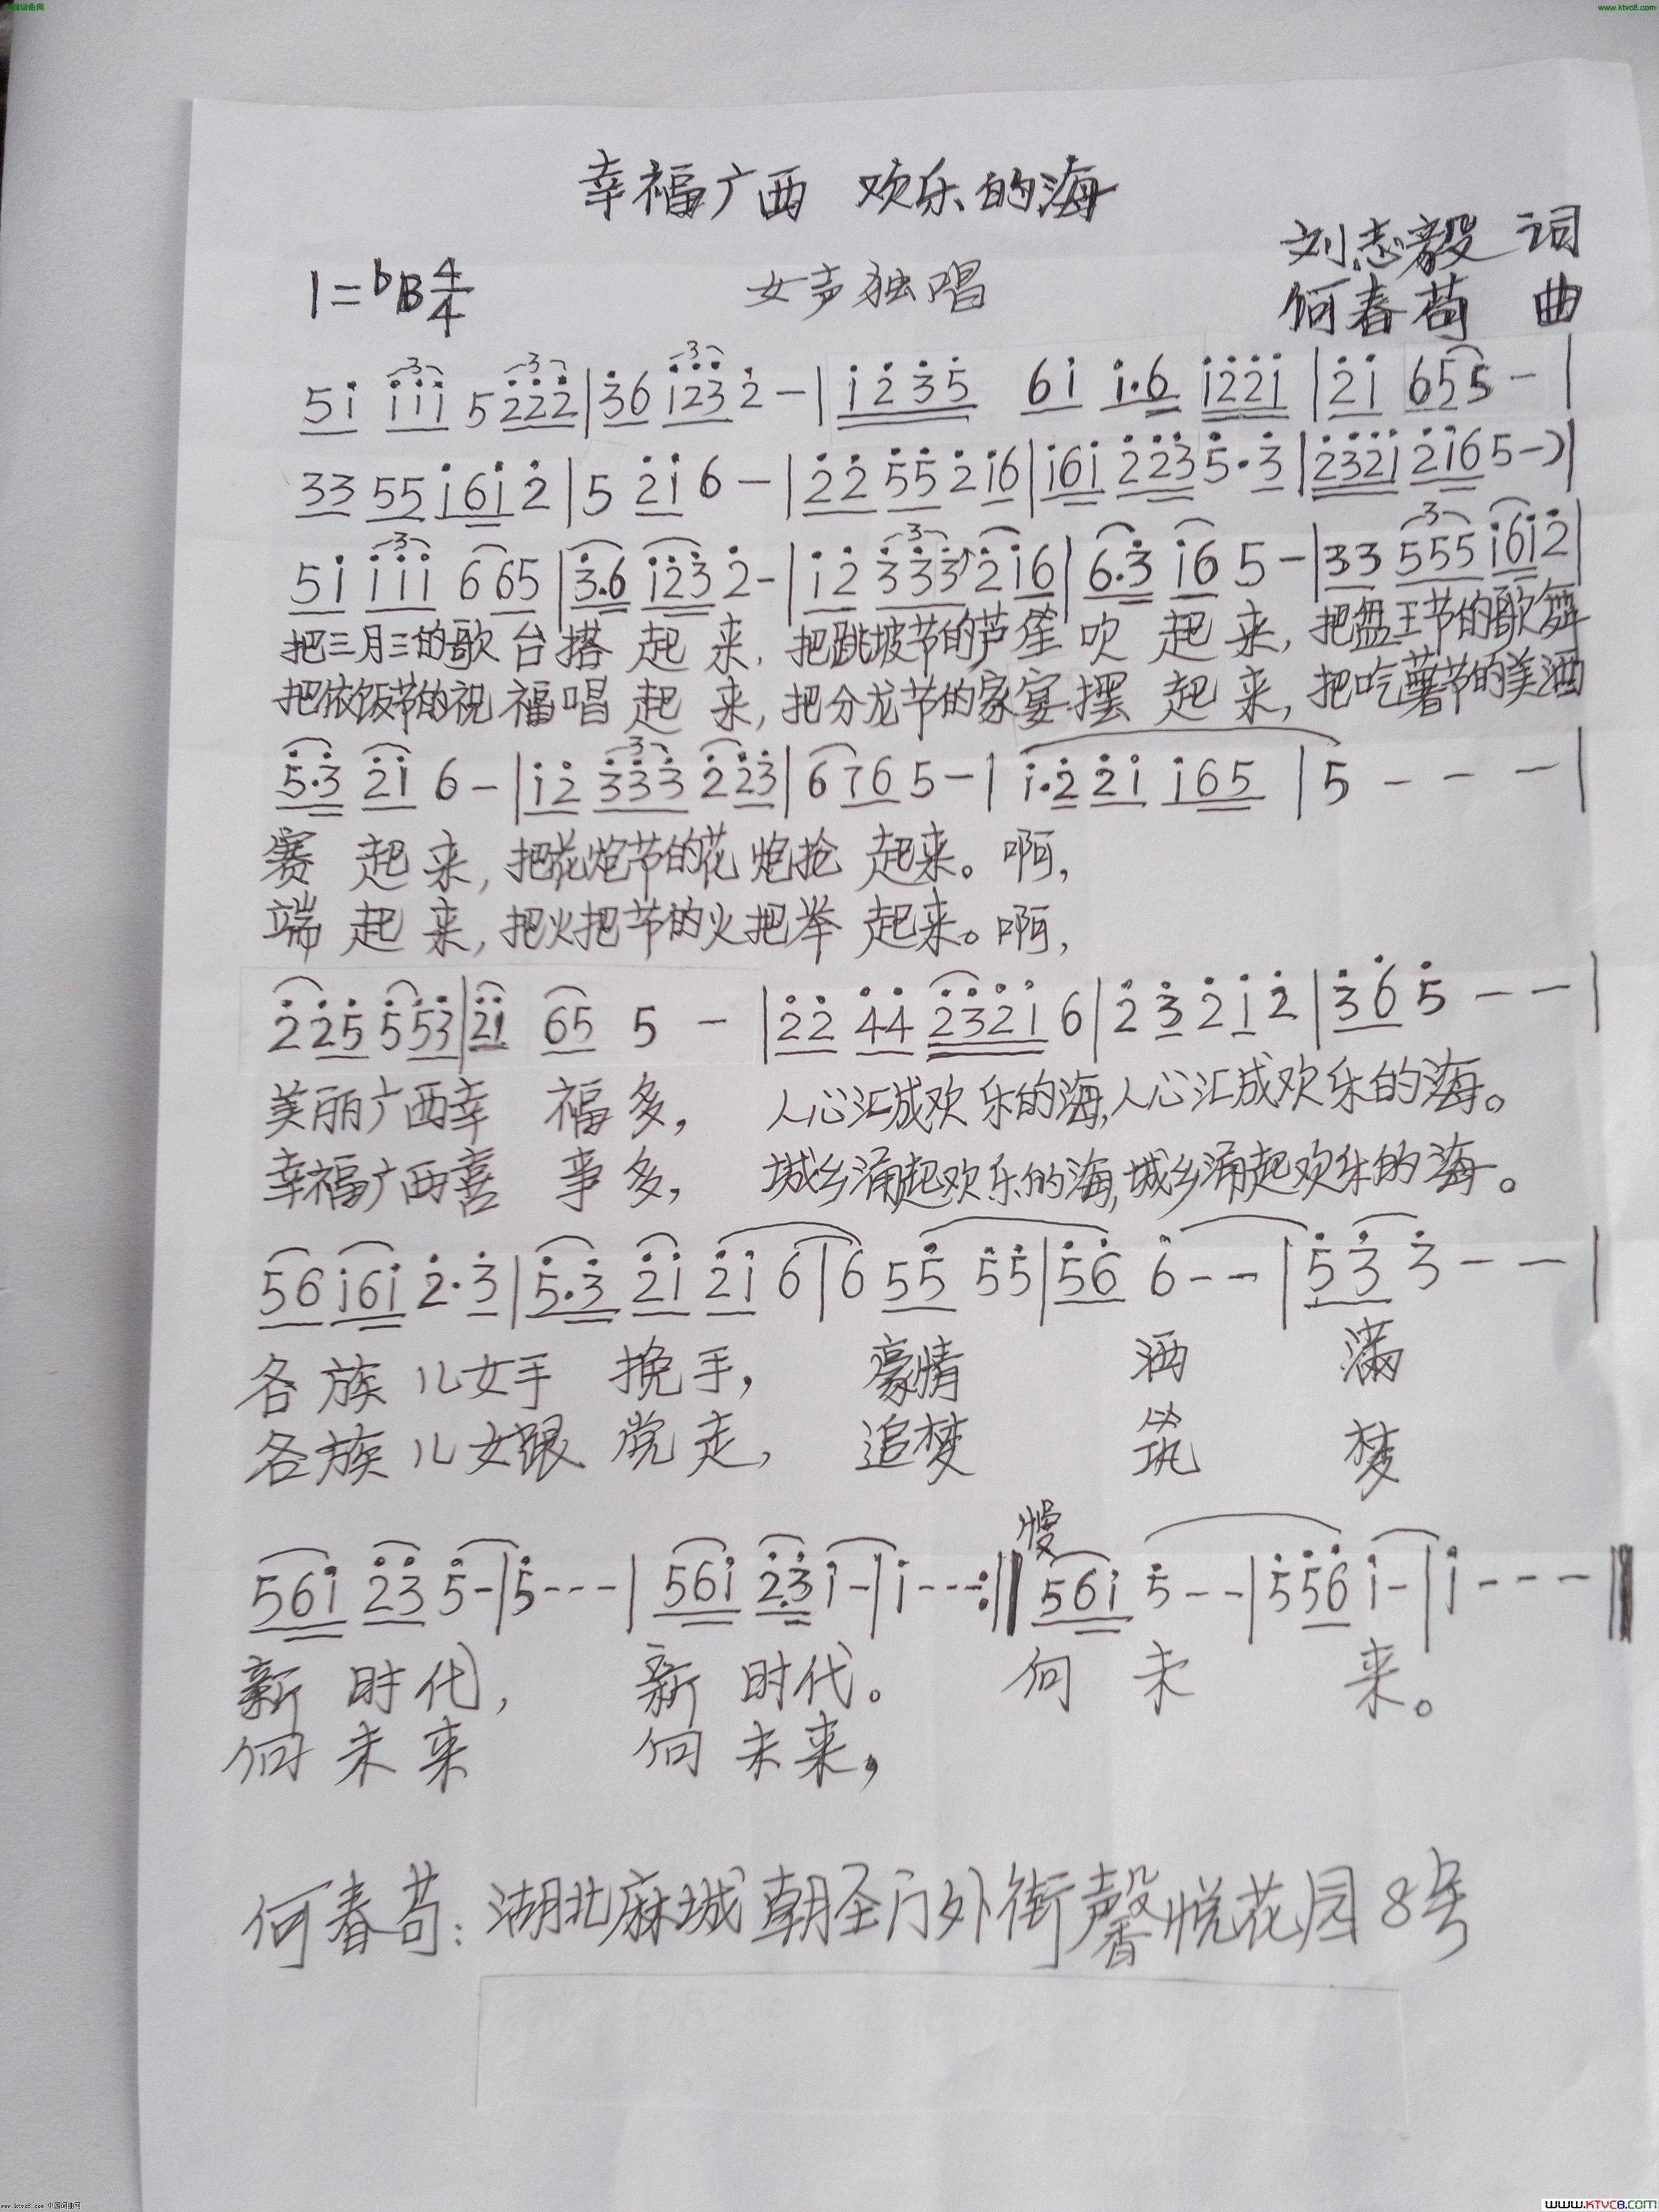 www.ktvc8.com
幸福广西 欢乐的海
刘志毅 词
1=♭B 4/4 女声独唱
何春苟 曲
5i iii 5 222|36 123 2-|i235 6i i.6 i22i|2i 65 5-|
33 55 i6i 2|5 2i 6-|22 55 2 i6|i6i 223 5.3|232i 2i6 5-)|
5i iii 6 65|3.6 i23 2-|i2 333 2 i6|6.3 i6 5-|33 555 i6i2|
把三月三的歌台搭起来,把跳坡节的芦笙吹起来,把盘王节的歌舞
把依饭节的祝福唱起来,把分龙节的家宴摆起来,把吃薯节的美酒
5.3 2i 6-|i2 333 2 23|6 76 5-|i.2 2i i65|5---|
赛起来,把花炮节的花炮抢起来。啊,
端起来,把火把节的火把举起来。啊,
2 25 5 53|2i 65 5-|22 44 232i 6|2 3 2 i 2|36 5--|
美丽广西幸福多, 人心汇成欢乐的海,人心汇成欢乐的海。
幸福广西喜事多, 城乡涌起欢乐的海,城乡涌起欢乐的海。
56 i6i 2.3|5.3 2i 2i 6|6 55 55|56 6--|53 3--|
各族儿女手挽手, 豪情 洒 满
各族儿女跟党走, 追梦 筑 梦
慢
56i 23 5-|5---|56i 23 i-|i---:‖56i 5--|556 i-|i---‖
新时代, 新时代。 向未来。
向未来 向未来,
何春苟:湖北麻城朝圣门外街馨悦花园8号
www.ktvc8.com 中国词曲网
WWW.KTVC8.COM